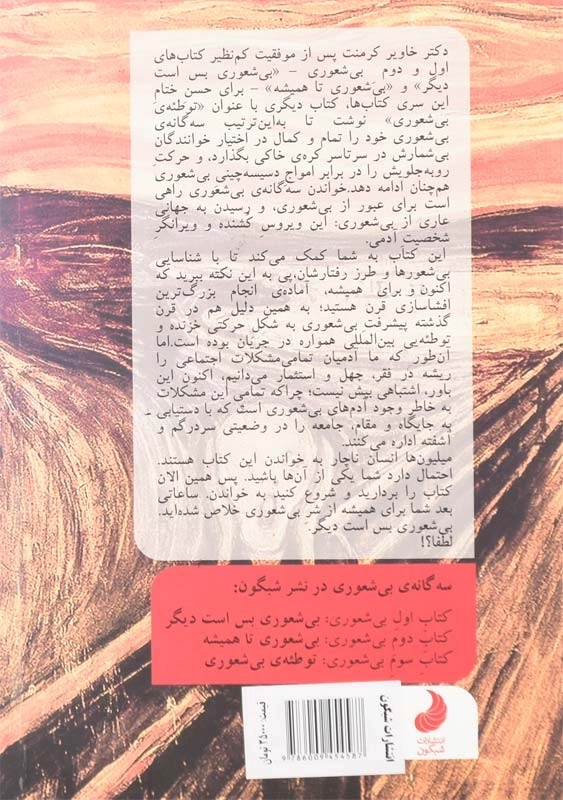 دکتر خاویر کرمنت پس از موفقیت کم‌نظیر کتاب‌های
اول و دوم بی‌شعوری – «بی‌شعوری بس است
دیگر» و «بی‌شعوری تا همیشه» – برای حسن ختام
این سری کتاب‌ها، کتاب دیگری با عنوان «توطئه‌ی
بی‌شعوری» نوشت تا به‌این‌ترتیب سه‌گانه‌ی
بی‌شعوری خود را تمام و کمال در اختیار خوانندگان
بی‌شمارش در سرتاسر کره‌ی خاکی بگذارد، و حرکت
روبه‌جلویش را در برابر امواج دسیسه‌چینی بی‌شعوری
هم‌چنان ادامه دهد.خواندن سه‌گانه‌ی بی‌شعوری راهی
است برای عبور از بی‌شعوری، و رسیدن به جهانی
عاری از بی‌شعوری: این ویروسِ کُشنده و ویرانگرِ
شخصیت آدمی.
این کتاب به شما کمک می‌کند تا با شناسایی
بی‌شعورها و طرز رفتارشان،پی به این نکته ببرید که
اکنون و برای همیشه، آماده‌ی انجام بزرگ‌ترین
افشاسازی قرن هستید؛ به همین دلیل هم در قرن
گذشته پیشرفت بی‌شعوری به شکل حرکتی خزنده و
توطئه‌یی بین‌المللی همواره در جریان بوده است.اما
آن‌طور که ما آدمیان تمامی‌مشکلات اجتماعی را
ریشه در فقر، جهل و استثمار می‌دانیم، اکنون این
باور، اشتباهی بیش نیست؛ چراکه تمامی این مشکلات
به خاطر وجود آدم‌های بی‌شعوری است که با دستیابی
به جایگاه و مقام، جامعه را در وضعیتی سردرگم و
آشفته اداره می‌کنند.
میلیون‌ها انسان ناچار به خواندن این کتاب هستند.
احتمال دارد شما یکی از آن‌ها باشید. پس همین الان
کتاب را بردارید و شروع کنید به خواندن. ساعاتی
بعد شما برای همیشه از شر بی‌شعوری خلاص شده‌اید.
بی‌شعوری بس است دیگر.
لطفا؟!
سه‌گانه‌ی بی‌شعوری در نشر شبگون:
کتاب اول بی‌شعوری: بی‌شعوری بس است دیگر
کتاب دوم بی‌شعوری: بی‌شعوری تا همیشه
کتاب سوم بی‌شعوری: توطئه‌ی بی‌شعوری
انتشارات شبگون
9 786009 454587
قیمت: ۳۵۰۰۰ تومان
انتشارات
شبگون